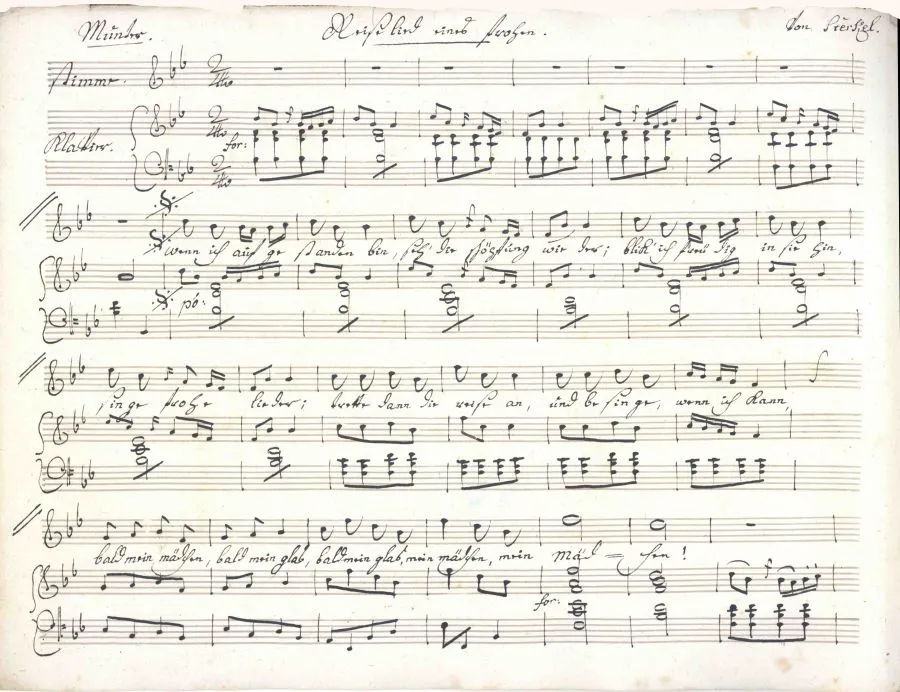 Munter. Reiselied eines frohen. Von
Stimme.
Klavier. for:
Wenn ich auf ge standen bin, seh die schöpfung wie der; blick' ich freu dig in sie hin,
po:
singe frohe lieder; trette dann die reise an, und be singe, wenn ich kann,
bald mein mädchen, bald mein glas, bald mein glas, mein mädchen, mein mäd = chen!
for: